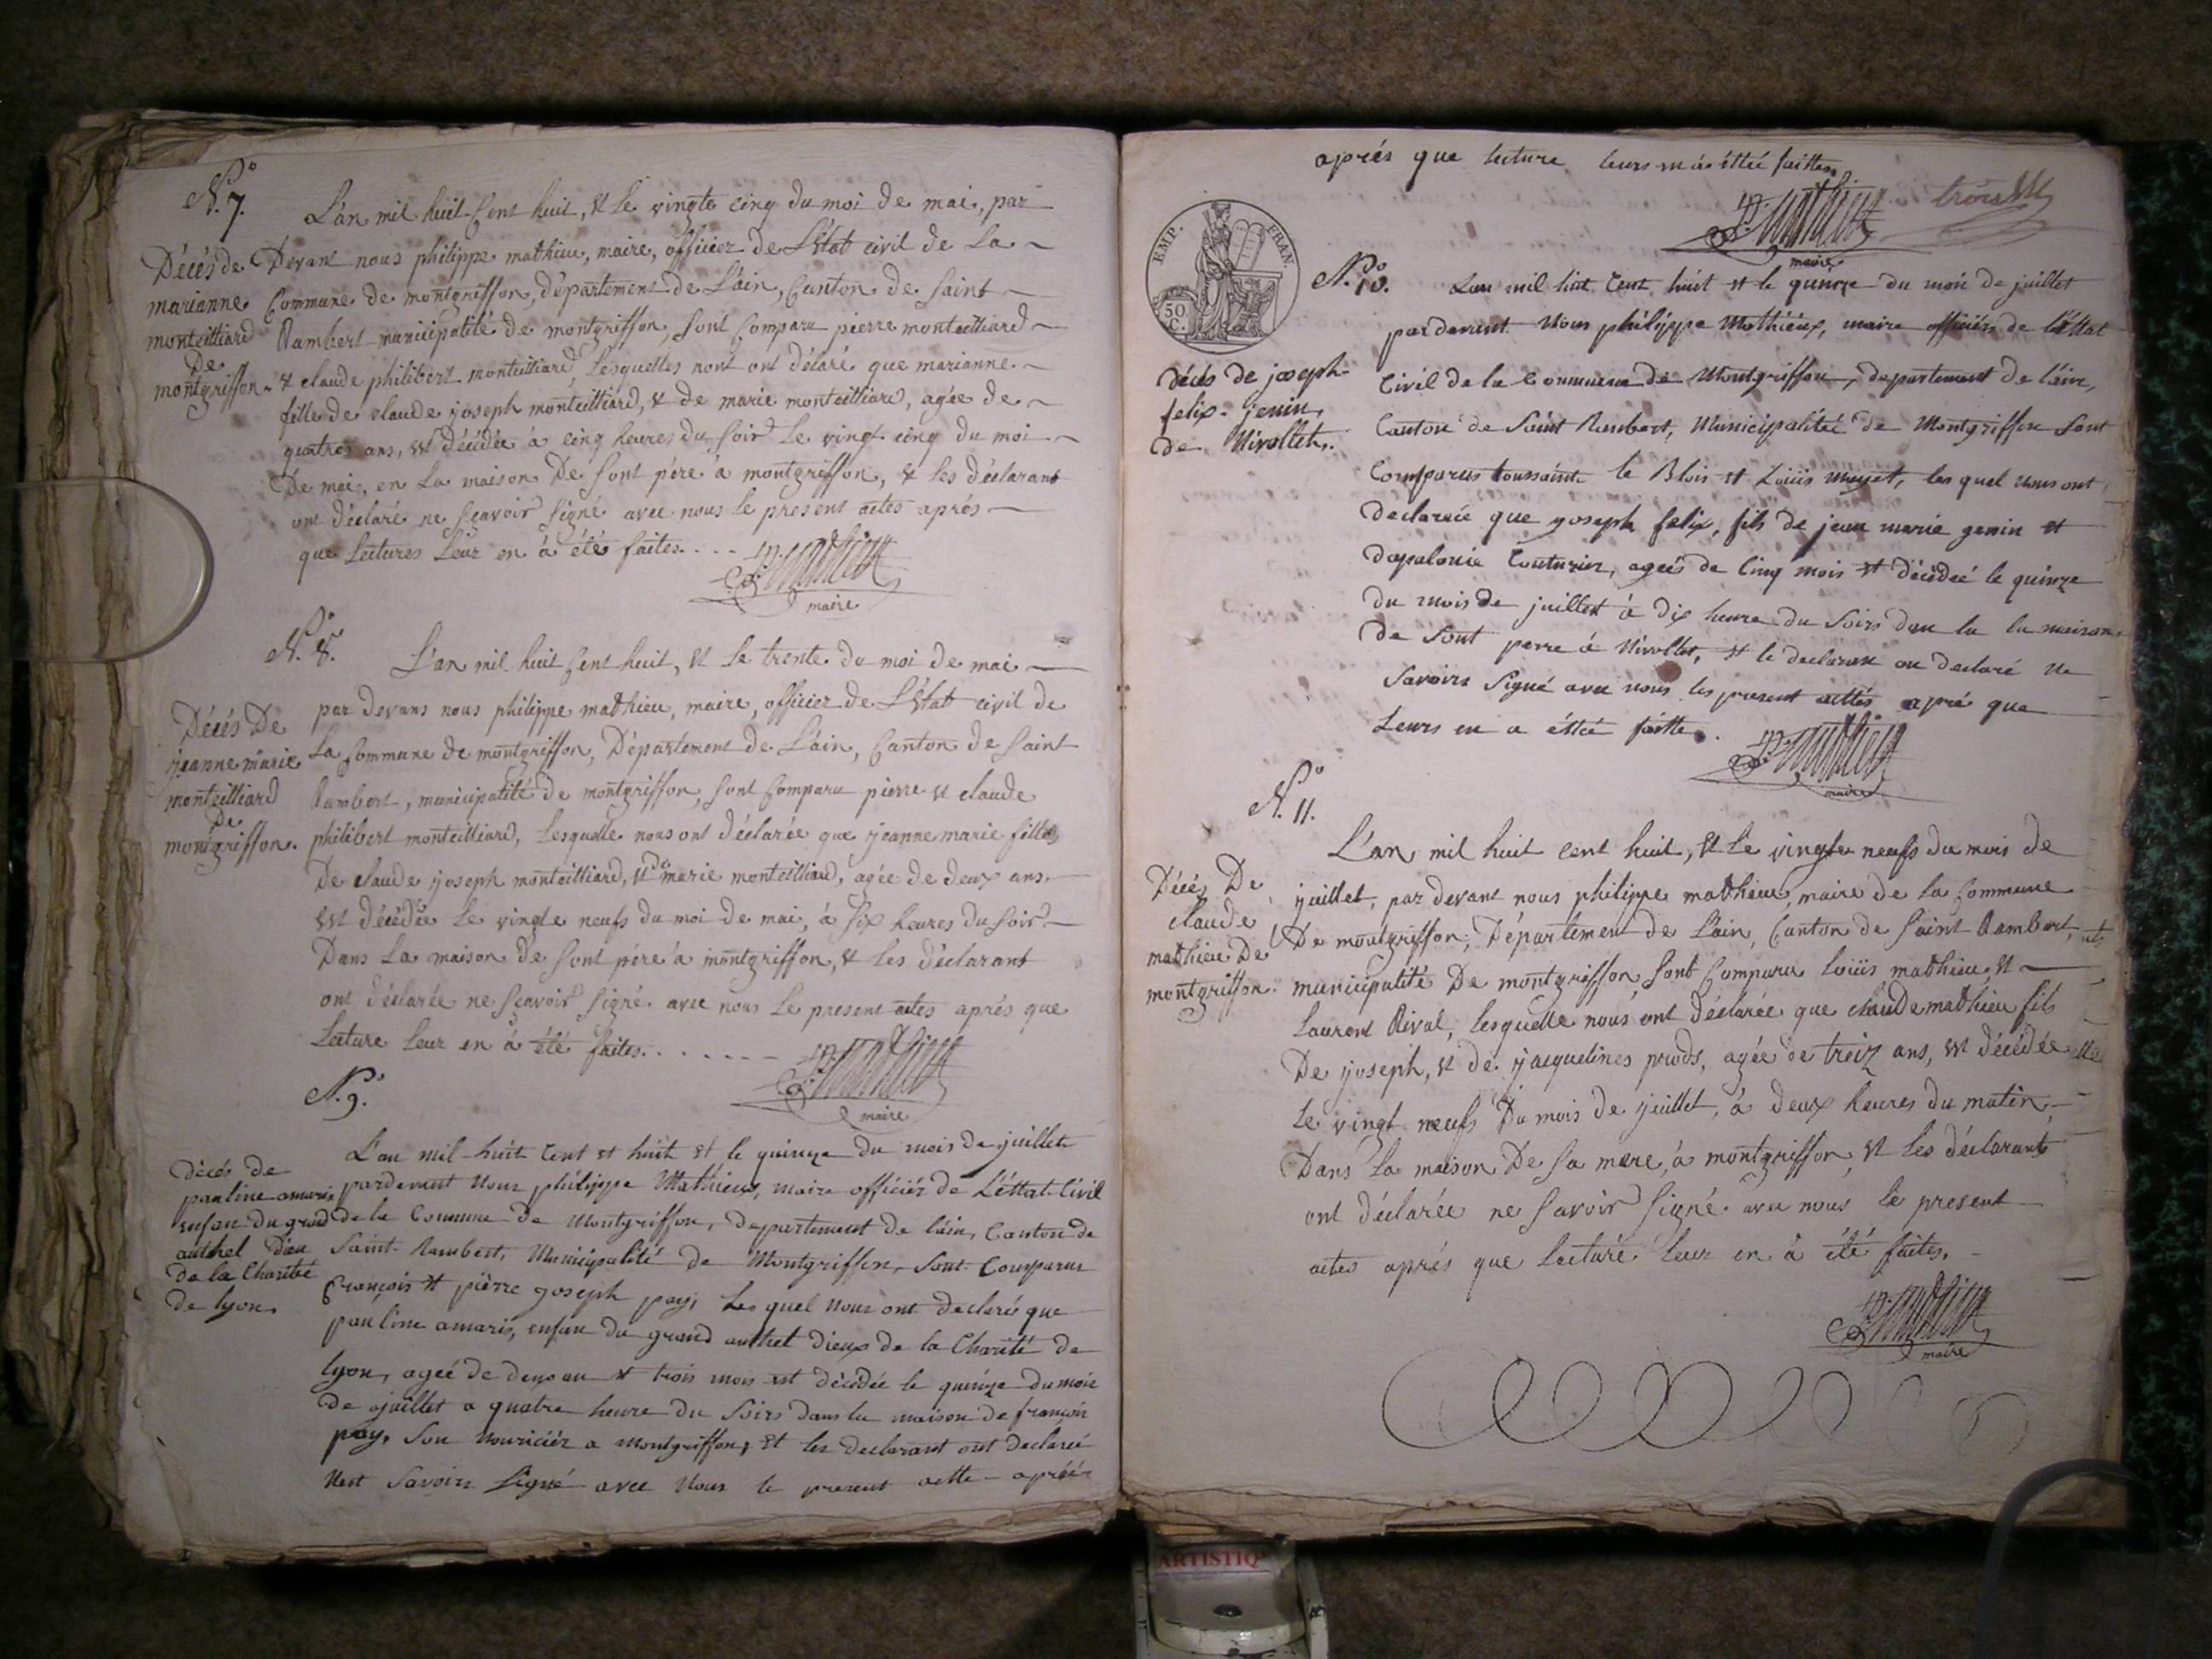 N.º 7.
L'an mil huit Cent huit, & le vingte cinq du moi de mai, par
Devant nous philippe mathieu, maire, officier de L'État civil de La
Commune de montgriffon, département de L'ain, Canton de Saint
Rambert municipalité de montgriffon, sont Comparu pierre monteilliard
& claude philibert monteilliard, Lesquelles nont ont délaré que marianne
fille de claude joseph monteilliard, & de marie monteilliard, agée de
quatres ans, est Décédée à cinq heures du soir le vingt cinq du moi
De mai, en La maison De sont père à montgriffon, & les déclarant
ont déclaré ne sçavoir signé avec nous le present actes aprés
que Lectures Leur en à été faites....
P. mathieu
maire
Décés de
marianne
monteilliard
De
montgriffon
N.º 8.
L'an mil huit Cent huit, & le trente du moi de mai
par devans nous philippe mathieu, maire, officier de L'État civil de
La Commune de montgriffon, Département de L'ain, Canton de Saint
Rambert, municipalité de montgriffon, sont Comparu pierre et claude
philibert monteilliard, Lesquelle nous ont déclarée que jeanne marie fille
De claude joseph monteilliard, & de marie monteilliard, agée de deux ans
est décédée Le vingte neufs du moi de mai, à six heures du soir
Dans La maison de sont père à montgriffon, & les déclarant
ont déclarée ne sçavoir signé avec nous Le present actes aprés que
Lecture Leur en à été faites.......
P. mathieu
maire
Décés De
jeanne marie
monteilliard
De
montgriffon.
N.º 9.
L'an mil huit Cent et huit et le quinze du mois de juillet
pardevant Nous philippe Mathieux, maire officiér de L'éttat Civil
de la Commune de Montgriffon, departement de l'ain, Canton de
Saint Rambert, Municipalité de Montgriffon, Sont Comparus
François et pièrre joseph pay, Les quel nous ont declarés que
pauline amaris, enfan du grand authel dieux de la Charité de
lyon, ageé de deux an et trois mois est décédée le quinze du mois
de juillet a quatre heure du Soirs dans la maison de françois
pay, Son Nouriciér a Montgriffon, et les declarant ont declareé
Nest Savoirs Signé avec Nous le present actte apréér
Décés de
pauline amaris
enfan du grad
authel Dieu
de la Charité
de lyon.
aprés que lecture leurs en a éttée faittes,
P. mathieu
maire
EMP. FRAN.
50 C.
N.º 10.
L'an mil huit Cent huit et le quinze du mois de juillet
pardevent Nous philippe Mathiéux, maire officiér de l'éttat
Civil de la Commune de Montgriffon, departement de l'ain,
Canton de Saint Rambert, Municipalitéé de Montgriffon Sont
Comparus toussaint le Blois et Loüis Muget, les quel nous ont
declareée que joseph felix, fils de jean marie genin et
dapalonie Couturier, ageés de Cinq mois et décédeé le quinze
du mois de juillet à dix heure du Soirs dan la la maison
de Sont perre á Nivollet, et le declarant on declaré ne
Savoirs Signé avec nous les present acttés apré que
Leurs en a éttée faitte.
P. mathieu
maire
Décés de joseph
felix jenin
de Nivollet.
N.º 11.
L'an mil huit cent huit, & Le vingte neufs du mois de
juillet, par devant nous philippe mathieu, maire de La Commune
De montgriffon, Département de L'ain, Canton de Saint Rambert,
municipalité De montgriffon sont Comparu Loüis mathieu, &
Laurent Rival, lesquelle nous ont déclarée que claude mathieu fils
De joseph, & de jacquelines prods, agée de treiz ans, est décédée
Le vingt neufs Du mois de juillet, à deux heures du matin
Dans La maison De sa mere, à montgriffon, & Les déclarant
ont déclarée ne savoir signé avec nous le present
actes aprés que Lecture Leur en à été faites.
P. mathieu
maire
Décés De
claude
mathieu De
montgriffon.
ARTISTIQ